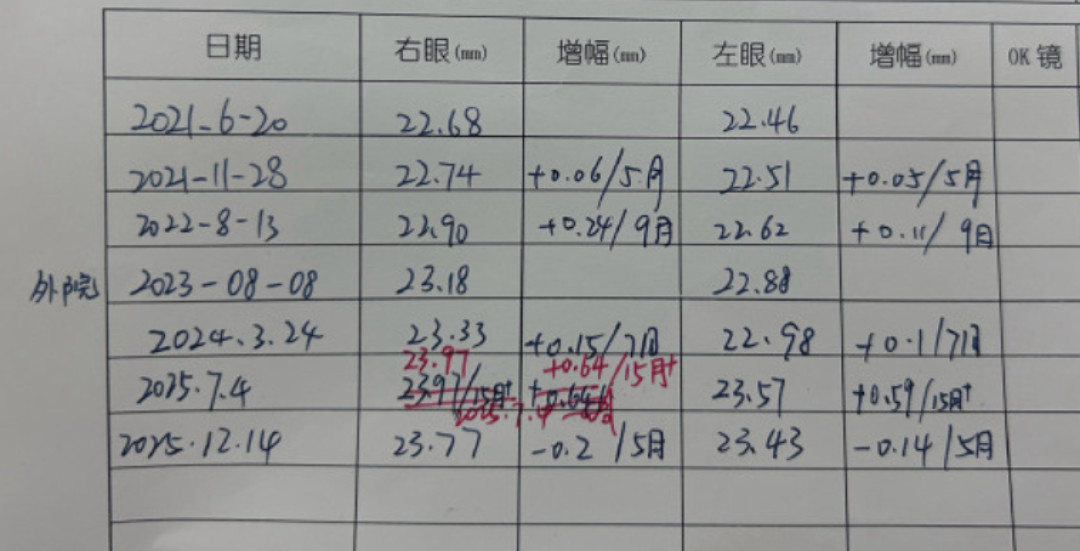 日期 右眼(mm) 增幅(mm) 左眼(mm) 增幅(mm) OK 镜
2021-6-20 22.68 22.46
2021-11-28 22.74 +0.06/5月 22.51 +0.05/5月
2022-8-13 22.90 +0.24/9月 22.62 +0.11/9月
外院 2023-08-08 23.18 22.88
2024.3.24 23.33 +0.15/7月 22.98 +0.1/7月
23.97 +0.64/15月+
2025.7.4 23.97/15月+ +0.64 23.57 +0.59/15月+
2025.7.4
2025.12.14 23.77 -0.2/5月 23.43 -0.14/5月